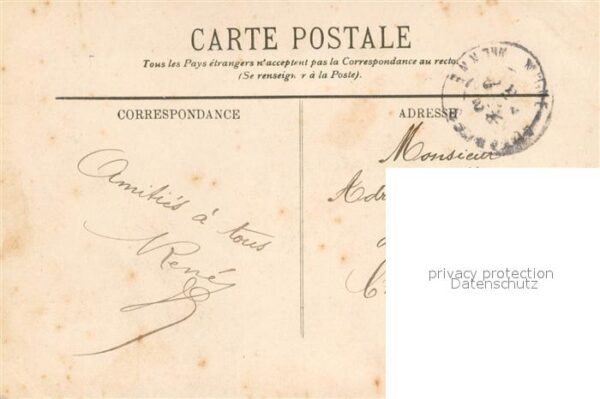 CARTE POSTALE
Tous les Pays étrangers n'acceptent pas la Correspondance au recto
(Se renseigner à la Poste).
CORRESPONDANCE
ADRESSE
Amitiés à tous
René
Monsieur
Adr
privacy protection
Datenschutz